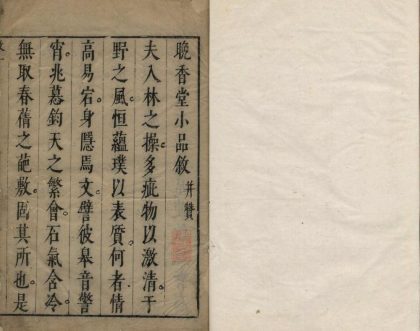 晚香堂小品敘 并贊
夫入林之操多疵物以激清于
野之風恒蘊璞以表質何者情
高易宕身隱焉文譬彼皋音警
宵兆慕鈞天之繁會石氣含冷
無取春蒨之葩敷固其所也是